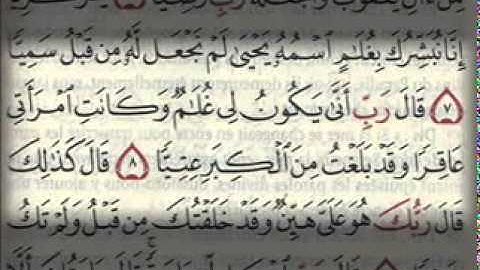 إِنَّا نُبَشِّرُكَ بِغُلَٰمٍ ٱسْمُهُۥ يَحْيَىٰ لَمْ نَجْعَل لَّهُۥ مِن قَبْلُ سَمِيًّا
٧ قَالَ رَبِّ أَنَّىٰ يَكُونُ لِى غُلَٰمٌ وَكَانَتِ ٱمْرَأَتِى
عَاقِرًا وَقَدْ بَلَغْتُ مِنَ ٱلْكِبَرِ عِتِيًّا ٨ قَالَ كَذَٰلِكَ
قَالَ رَبُّكَ هُوَ عَلَىَّ هَيِّنٌ وَقَدْ خَلَقْتُكَ مِن قَبْلُ وَلَمْ تَكُ